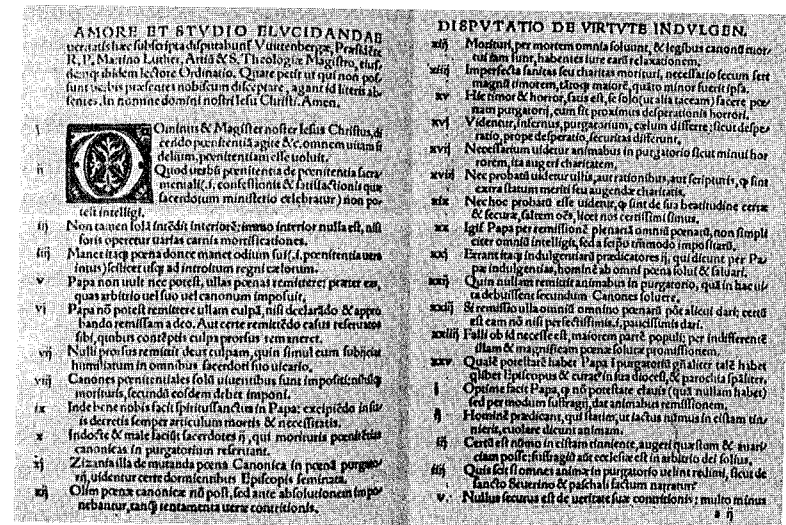 AMORE ET STVDIO ELVCIDANDAE
ueritatis hæc subscripta disputabunť Vuittenbergæ, Præsidẽte
R. P. Martino Luther, Artiũ & S. Theologiæ Magistro, eius,
dem ibidem lectore Ordinario. Quare petit ut qui non pos,
sunt uerbis præsentes nobiscum disceptare, agant id literis ab,
sentes. In nomine domini nostri Iesu Christi. Amen.
i DOminus & Magister noster Iesus Christus, di
cendo pœnitentiã agite &c. omnem uitam fi
delium, pœnitentiam esse uoluit.
ii Quod uerbũ pœnitentia de pœnitentia sacra
mentali(.i. confessionis & satisfactionis quæ
sacerdotum ministerio celebratur) non po,
test intelligi.
iij Non tamen solã intẽdit interiorẽ: immo interior nulla est, nisi
foris operetur uarias carnis mortificationes.
iiij Manet itaq; pœna donec manet odium sui(.i. pœnitentia uera
intus) scilicet usq; ad introitum regni cælorum.
v Papa non uult nec potest, ullas pœnas remittere: præter eas,
quas arbitrio uel suo uel canonum imposuit.
vj Papa nõ potest remittere ullam culpã, nisi declarãdo & appro
bando remissam a deo. Aut certe remittẽdo casus reseruatos
sibi, quibus contẽptis culpa prorsus remaneret.
vij Nulli prorsus remittit deus culpam, quin simul eum subijciat
humiliatum in omnibus sacerdoti suo uicario.
viij Canones pœnitentiales solũ uiuentibus sunt impositi: nihilq;
morituris, secundũ eosdem debet imponi.
ix Inde bene nobis facit spiritussanctus in Papa: excipiẽdo in su
is decretis semper articulum mortis & necessitatis.
x Indocte & male faciũt sacerdotes ij, qui morituris pœnitẽtias
canonicas in purgatorium reseruant.
xj Zizania illa de mutanda pœna Canonica in pœnã purgato
rij, uidentur certe dormientibus Episcopis seminata.
xij Olim pœnæ canonicæ nõ post, sed ante absolutionem impo
nebantur, tanq̃ tentamenta ueræ contritionis.
DISPVTATIO DE VIRTVTE INDVLGEN.
xiij Morituri, per mortem omnia soluunt, & legibus canonũ mor
tui iam sunt, habentes iure earũ relaxationem.
xiiij Imperfecta sanitas seu charitas morituri, necessario secum fert
magnũ timorem, tãtoq; maiorẽ, quãto minor fuerit ipsa.
xv Hic timor & horror, satis est, se solo (ut alia taceam) facere pœ
nam purgatorij, cum sit proximus desperationis horrori.
xvj Videntur, infernus, purgatorium, cælum differre: sicut despe,
ratio, prope desperatio, securitas differunt.
xvij Necessarium uidetur animabus in purgatorio sicut minui hor
rorem, ita augeri charitatem.
xviij Nec probatũ uidetur ullis, aut rationibus, aut scripturis, q̃ sint
extra statum meriti seu augendæ charitatis.
xix Nec hoc probatũ esse uidetur, q̃ sint de sua beatitudine certæ
& securæ, saltem oẽs, licet nos certissimi simus.
xx Igiť Papa per remissionẽ plenariã omniũ pœnarũ, non simpli
citer omniũ intelligit, sed a seipso tm̃modo impositarũ.
xxj Errant itaq; indulgentiarũ prædicatores ij, qui dicunt per Pa,
pæ indulgentias, hominẽ ab omni pœna solui & saluari.
xxij Quin nullam remittit animabus in purgatorio, quã in hac ui,
ta debuissent secundum Canones soluere.
xxiij Si remissio ulla omniũ omnino pœnarũ põt alicui dari: certũ
est eam nõ nisi perfectissimis .i. paucissimis dari.
xxiiij Falli ob id necesse est, maiorem partẽ populi: per indifferentẽ
illam & magnificam pœnæ solutæ promissionem.
xxv Qualẽ potestatẽ habet Papa ĩ purgatoriũ gñaliter talẽ habet
q̃libet Episcopus & curat9 in sua diocesi, & parochia spãliter.
i Optime facit Papa, q̃ nõ potestate clauis (quã nullam habet)
sed per modum suffragij, dat animabus remissionem.
ij Hominẽ prædicant, qui statim, ut iactus nũmus in cistam tin
nierit, euolare dicunt animam.
iij Certũ est nũmo in cistam tinniente, augeri quæstum & auari,
ciam posse: suffragiũ aũt ecclesiæ est in arbitrio dei solius.
iiij Quis scit si omnes animæ in purgatorio uelint redimi, sicut de
sancto Seuerino & paschali factum narratur.
v Nullus securus est de ueritate suæ contritionis: multo minus
a ij